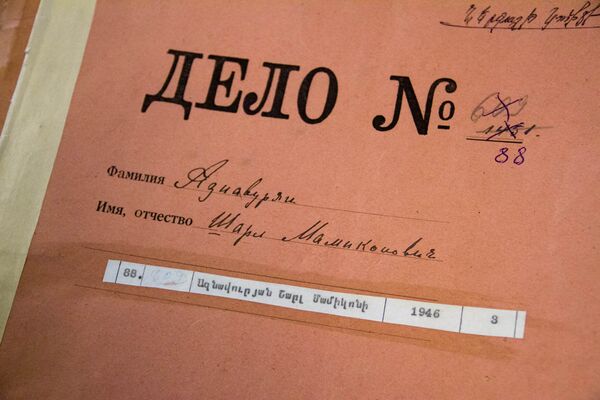 ДЕЛО № 88
Фамилия Азнавурян
Имя, отчество Шарл Мамиконович
88. Ազնավուրյան Շարլ Մամիկոնի 1946 3